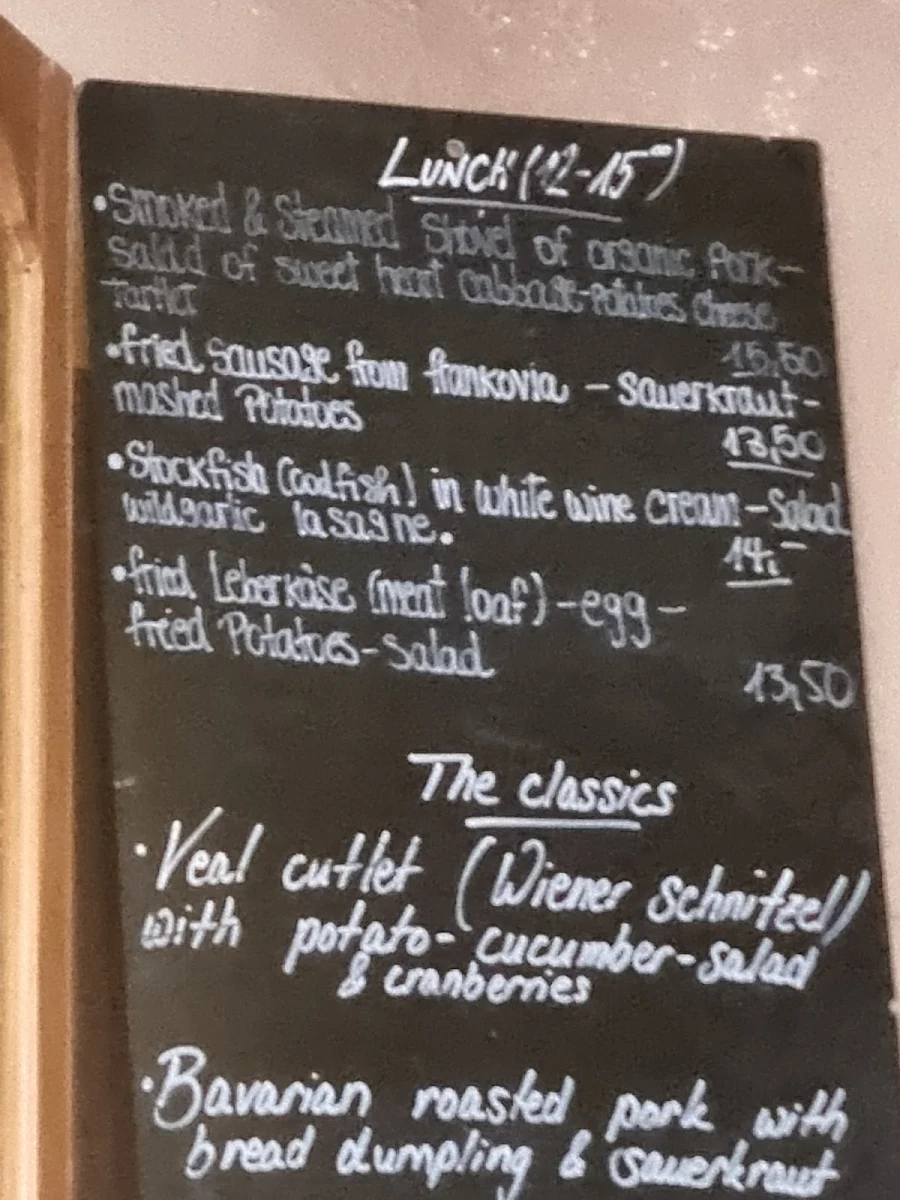 LUNCH (12-15⁰⁰)
• Smoked & Steamed Shovel of organic Pork-
Salad of sweet heart cabbage-Potatoes cheese
Tartlet
15,50
• fried Sausage from frankovia - Sauerkraut-
mashed Potatoes
13,50
• Stockfish (codfish) in white wine cream-Salad
wildgarlic lasagne.
14,-
• fried Leberkäse (meat loaf)-egg-
fried Potatoes-Salad
13,50
The classics
• Veal cutlet (Wiener Schnitzel)
with potato-cucumber-salad
& cranberries
• Bavarian roasted pork with
bread dumpling & Sauerkraut